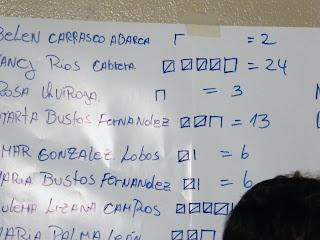 BELEN CARRASCO ABARCA = 2
NANCY RIOS CABRERA = 24
ROSA QUIROGA = 3
MARTA BUSTOS FERNANDEZ = 13
OMAR GONZALEZ LOBOS = 6
MARIA BUSTOS FERNANDEZ = 6
ZULEMA LIZANA CAMPOS
MARIA PALMA LEÓN